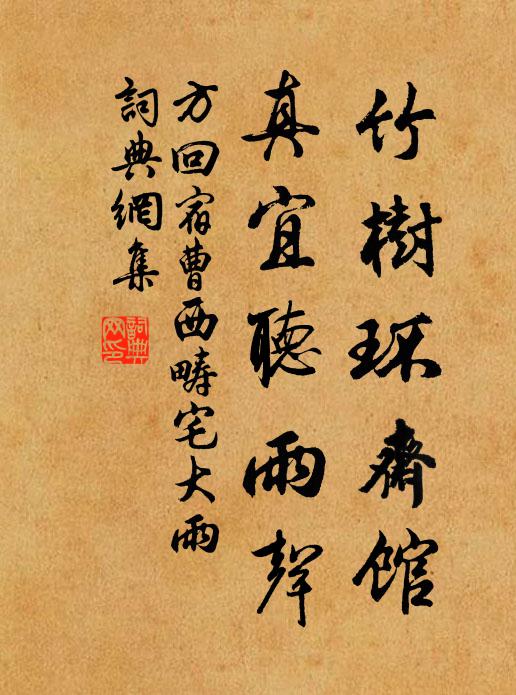 竹樹环齋館
真宜聽雨聲
方回宿曹西疇宅大雨
詞典網集
詞典网印